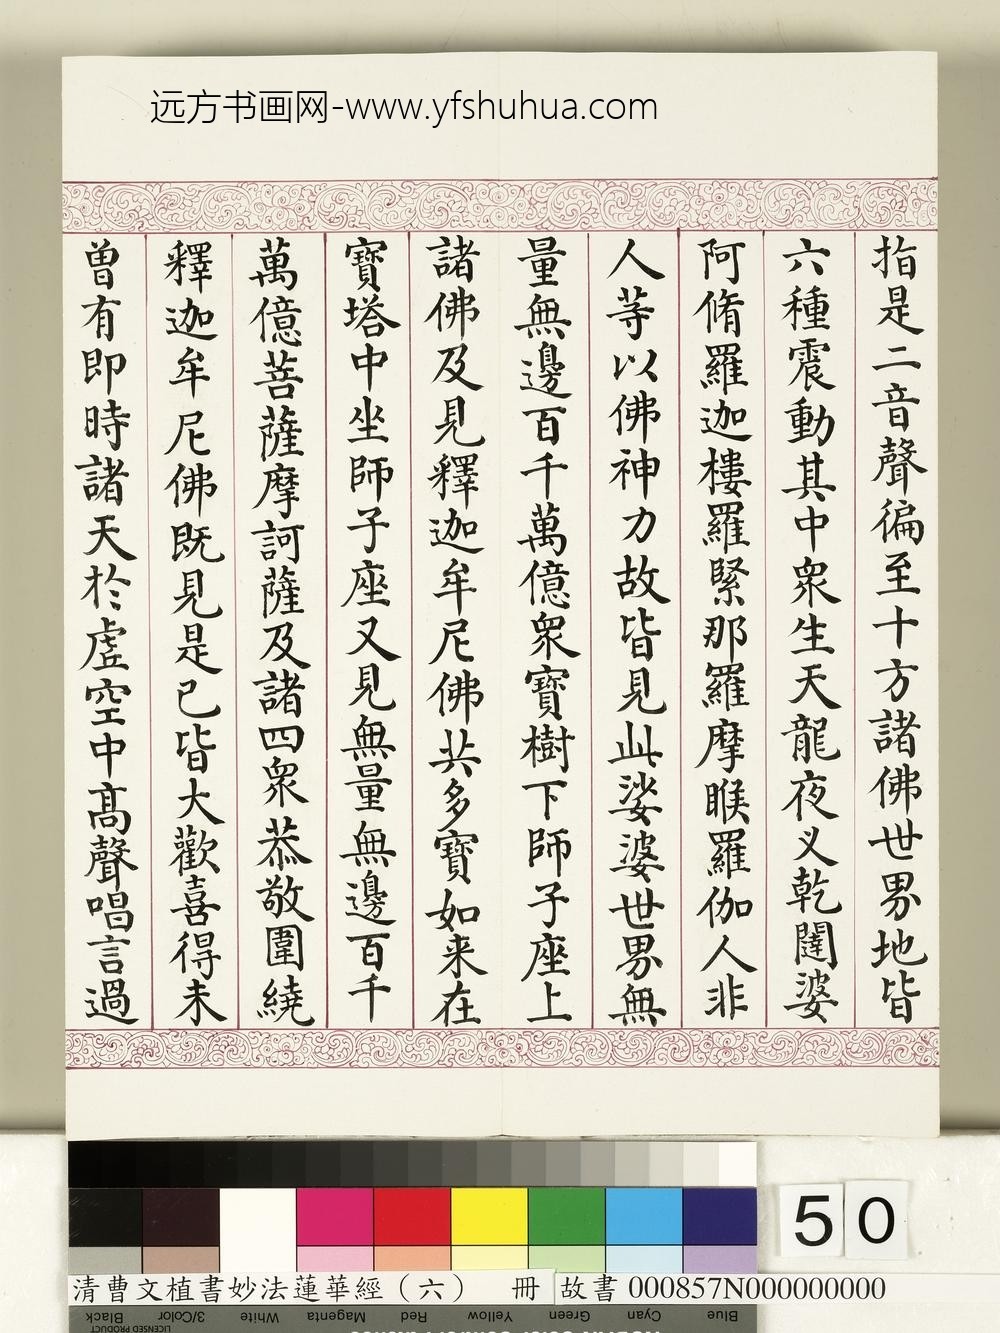 远方书画网-www.yfshuhua.com
指是二音聲徧至十方諸佛世界地皆
六種震動其中衆生天龍夜义乾闥婆
阿脩羅迦樓羅緊那羅摩睺羅伽人非
人等以佛神力故皆見此娑婆世界無
量無邊百千萬億衆寶樹下師子座上
諸佛及見釋迦牟尼佛共多寶如来在
寶塔中坐師子座又見無量無邊百千
萬億菩薩摩訶薩及諸四衆恭敬圍繞
釋迦牟尼佛既見是已皆大歡喜得未
曾有即時諸天於虛空中高聲唱言過
50
清曹文植書妙法蓮華經（六） 冊 故書 000857N000000000
Black 3/Color White Magenta Red Yellow Green Cyan Blue
LICENSED PRODUCT